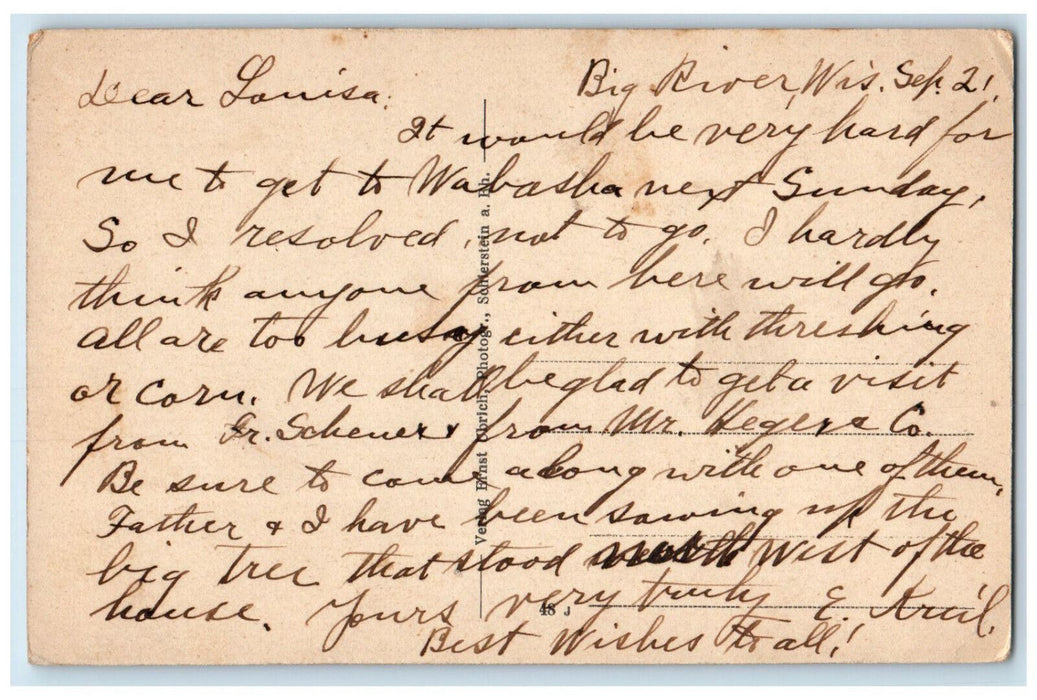 Big River, Wis. Sep. 21.
Dear Louisa:
It would be very hard for
me to get to Wabasha next Sunday,
So I resolved, not to go. I hardly
think anyone from here will go.
All are too busy either with threshing
or corn. We shall be glad to get a visit
from Fr. Scheuer & from Mr. Heger & Co.
Be sure to come along with one of them.
Father & I have been sawing up the
big tree that stood west of the
house. Yours very truly E.
Best Wishes to all!
Verlag Ernst Olbrich, Photogr., Schierstein a. Rh.
48 J